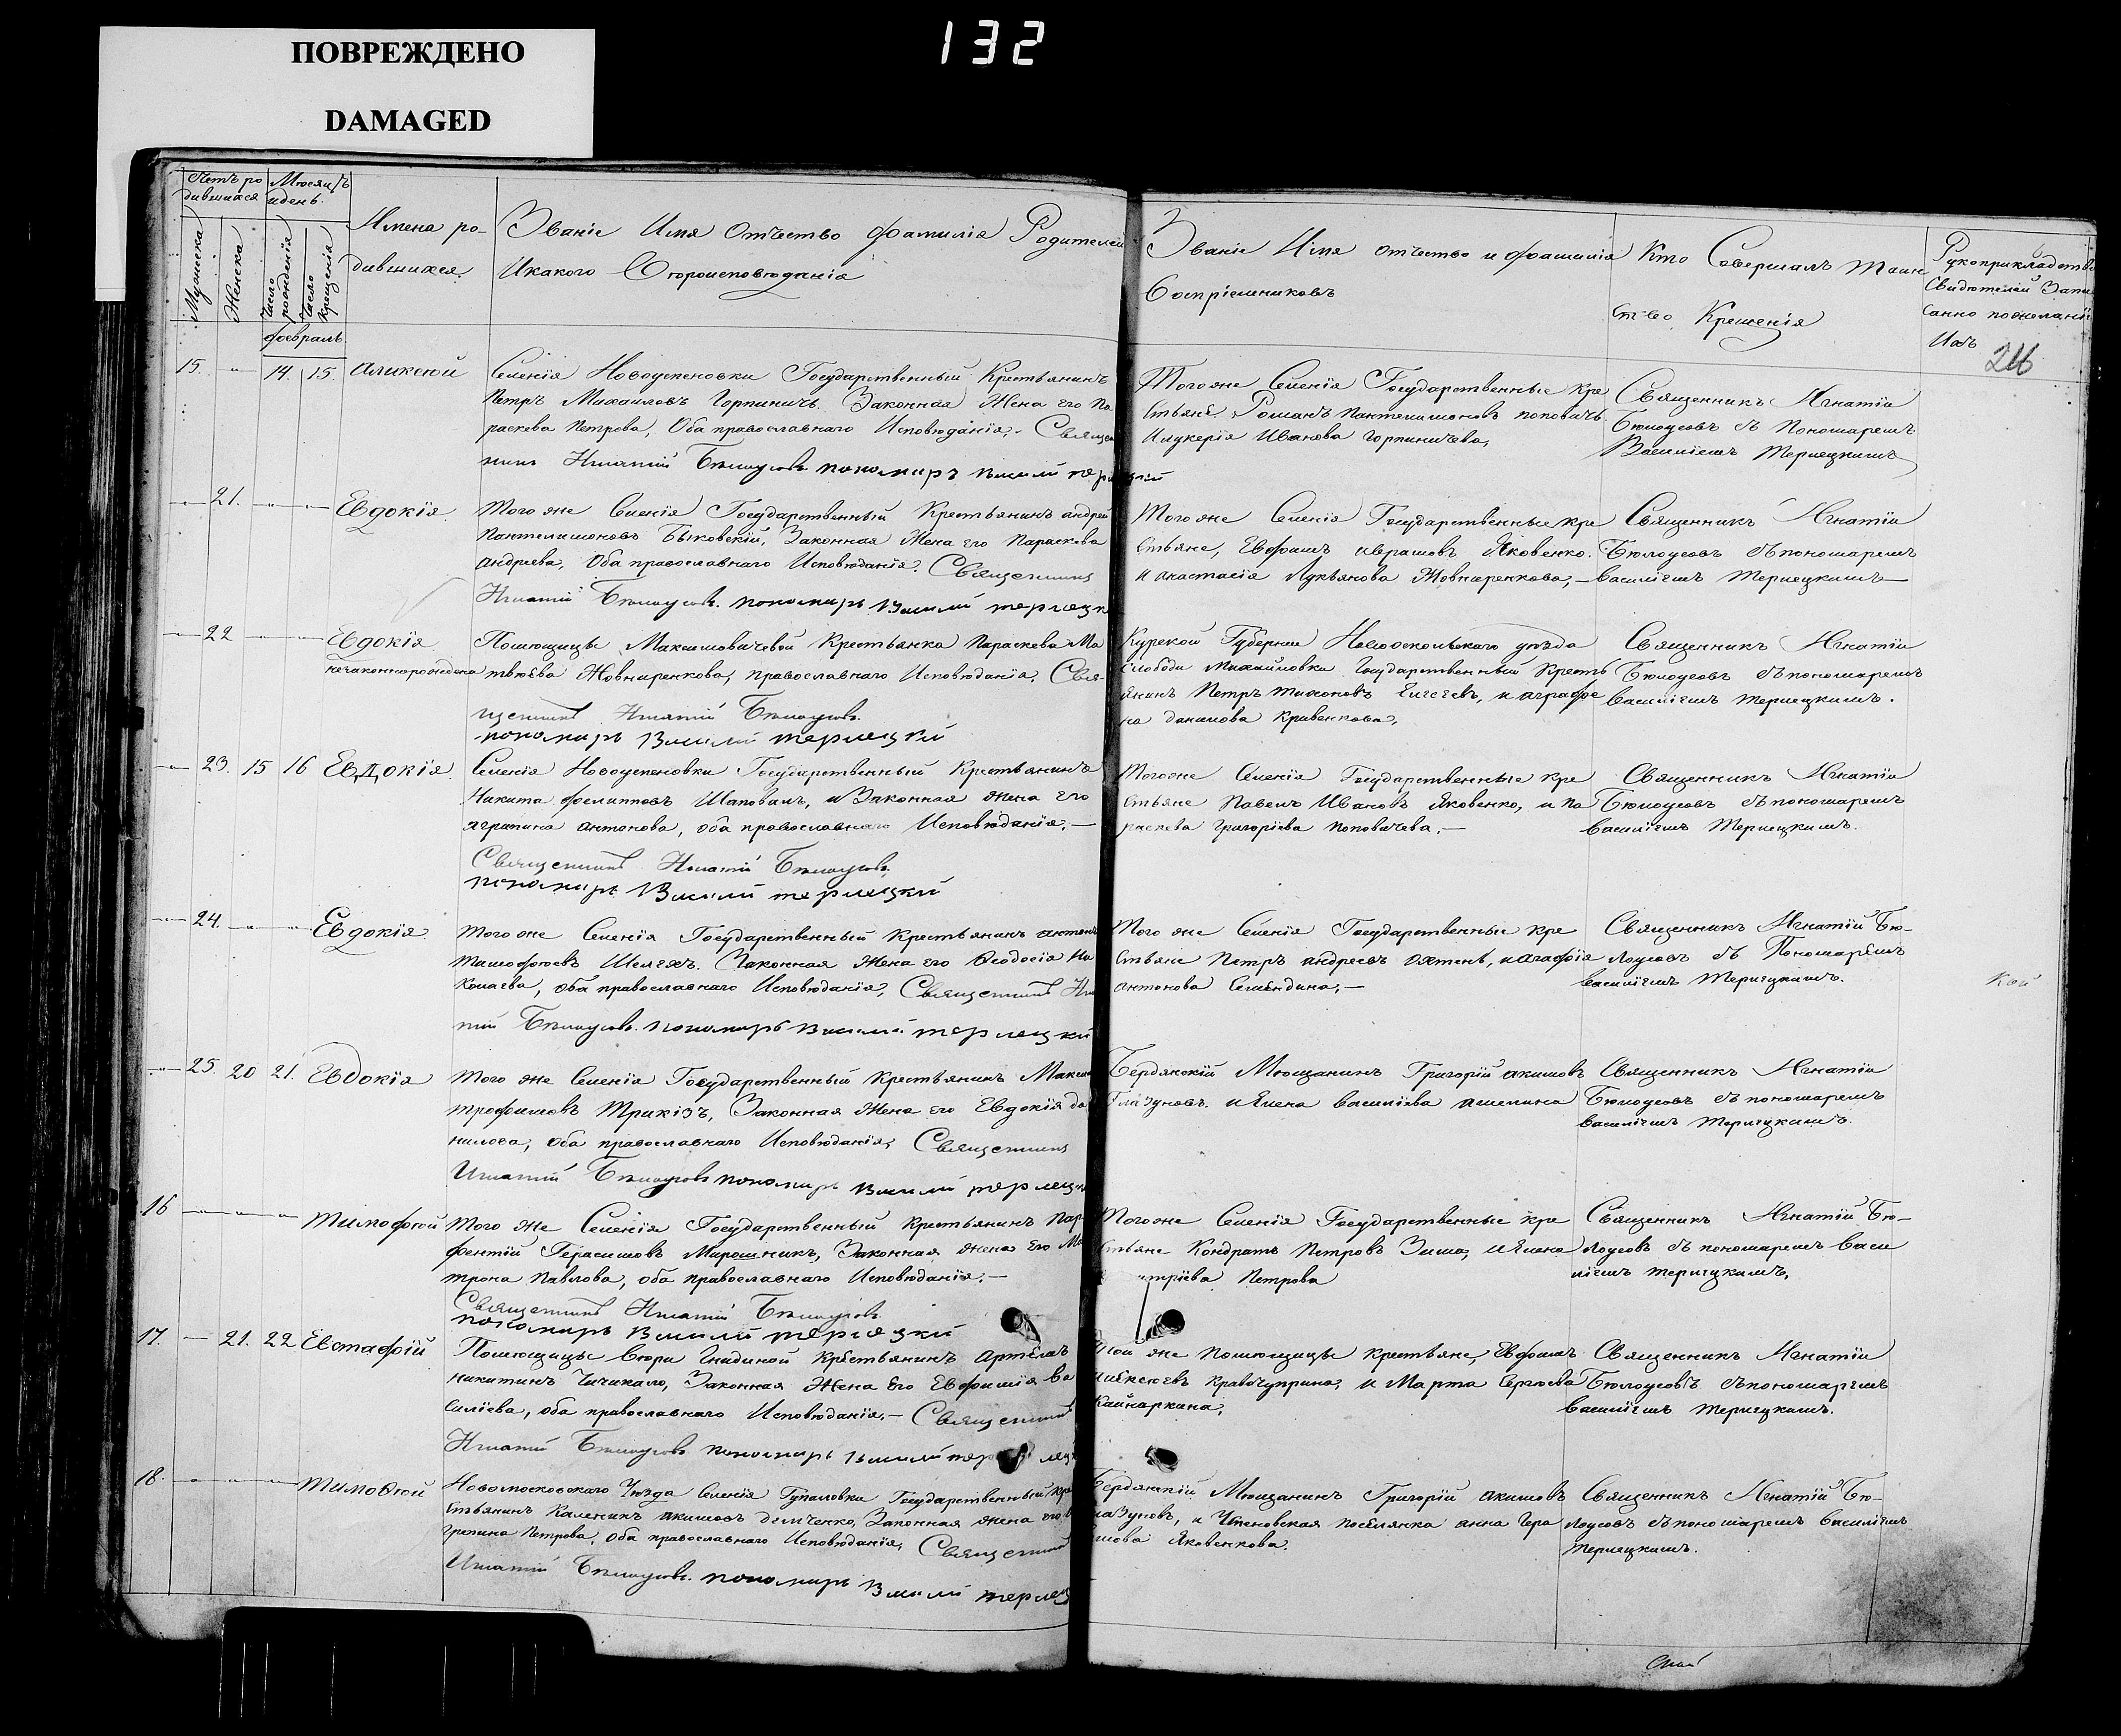 132
ПОВРЕЖДЕНО
DAMAGED
Счетъ ро
дившихся
Мѣсяцъ
и день.
Мужеска
Женска
Число рожденія
Число крещенія
Имена ро-
дившихся.
Званіе Имя Отчество Фамилія Родителей
И какого Вѣроисповѣданія
Званіе Имя отчество и фамилія
Воспріемниковъ
Кто Совершалъ таин
ство Крещенія
Рукоприкладство
Свидѣтелей Запи
санно по желанію
Ихъ
216
февраль.
15. 14. 15. Аликсѣй
Селенія Новоуспеновки Государственный Крестьянинъ
Петръ Михаиловъ Горпиничъ. Законная Жена его Па
раскева Петрова, Оба православнаго Исповѣданія,- Священ
никъ Игнатій Бѣлоусовъ. пономарь Василій терлецкій
Того же Селенія Государственные кре
стьяне. Романъ Пантелимоновъ поповичъ.
И лукерія Иванова Горпиничева,
Священникъ Игнатіи
Бѣлоусовъ съ Пономаремъ
Василіемъ Терлецкимъ
21. Евдокія.
Того же Селенія Государственный Крестьянинъ андрей
Пантелимоновъ Быковскій, Законная Жена его Параскева
андреева, Оба православнаго Исповѣданія. Священникъ
Игнатій Бѣлоусовъ. пономарь Василій терлецк
Того же Селенія Государственные кре
стьяне, Евфимъ аврамовъ Яковенко.
и анастасія Лукьянова Жовниренкова,-
Священникъ Игнатіи
Бѣлоусовъ съ пономаремъ
василіемъ терлецкимъ
22 Евдокія
незаконнорожденна
Помѣщицы Максимовичевой Крестьянка Параскева Ма
твѣева Жовниренкова, православнаго Исповѣданія. Свя-
щенникъ Игнатій Бѣлоусовъ.
пономарь Василій терлецкій
Курской Губерніи Новооскольскаго уѣзда
Слободи Михайловки Государственный Кресть
янинъ Петръ тихоновъ Елисеевъ, и аграфе
на данилова Кривенкова,
Священникъ Игнатіи
Бѣлоусовъ съ пономаремъ
василіемъ терлецкимъ.
23. 15 16 Евдокія.
Селенія Новоуспеновки Государственный Крестьянинъ
Никита филиповъ Шаповалъ, и Законная жена его
агрипина антонова, оба православнаго Исповѣданія,-
Священникъ Игнатій Бѣлоусовъ,
пономарь Василій терлецкій
Того же Селенія Государственные кре
стьяне Павелъ Ивановъ Яковенко, и Па
раскева григоріева поповичева,-
Священникъ Игнатіи
Бѣлоусовъ съ пономаремъ
василіемъ терлецкимъ.
24. Евдокія.
Того же Селенія Государственный Крестьянинъ антонъ
тимофѣевъ Шелехъ. Законная Жена его Ѳеодосія Ни
колаева, оба православнаго Исповѣданія, Священникъ Игна
тій Бѣлоусовъ. пономарь Василій терлецкій
Того же Селенія Государственные кре
стьяне Петръ андреевъ и агафія
антонова
Священникъ Игнатій Бѣ-
лоусовъ съ Пономаремъ
василіемъ терлецкимъ.
25. 20 21. Евдокія
Того же Селенія Государственный Крестьянинъ Максимъ
трофимовъ Трикізъ, Законная Жена его Евдокія да
нилова, оба православнаго Исповѣданія, Священникъ
Игнатій Бѣлоусовъ пономарь Василій терлецк
Бердянскій Мѣщанинъ Григорій акимовъ
Глазуновъ. и Елена василіева
Священникъ Игнатіи
Бѣлоусовъ съ пономаремъ
василіемъ терлецкимъ.
16 Тимофѣй
Того же Селенія Государственный Крестьянинъ Пар
фентій Герасимовъ Мирошникъ, Законная жена его Ма
трона Павлова, оба православнаго Исповѣданія,-
Священникъ Игнатій Бѣлоусовъ
пономарь Василій терлецкій
Того же Селенія Государственные кре
стьяне Кондратъ Петровъ Зима, и Елена
Петрова
Священникъ Игнатій Бѣ-
лоусовъ съ пономаремъ Васи
ліемъ терлецкимъ,
17. 21. 22 Евстафій
Помѣщицы вѣри Гнидиной Крестьянинъ Артемъ
никитинъ Чичикало, Законная Жена Его Евфимія ва
силіева, оба православнаго Исповѣданія,- Священникъ
Игнатій Бѣлоусовъ пономарь Василій тер лец
Той же помѣщицы крестьяне, Евфимъ
алексѣевъ кравчуприна, и Марта Сергѣева
Кайнаркина,
Священникъ Игнатіи
Бѣлоусовъ съ пономаремъ
василіемъ терлецкимъ.
18. Тимоѳей
Новомосковскаго Уѣзда Селенія Гупаловки Государственный Кре
стьянинъ Каленикъ акимовъ демченко, Законная жена его а
грипина Петрова, оба православнаго Исповѣданія, Священникъ
Игнатій Бѣлоусовъ. пономарь Василій терлец
Бердянскій Мѣщанинъ Григорій акимовъ
лазуновъ, и поселянка анна Гера
симова Яковенкова.
Священникъ Игнатій Бѣ-
лоусовъ съ пономаремъ василіемъ
терлецкимъ.
кой